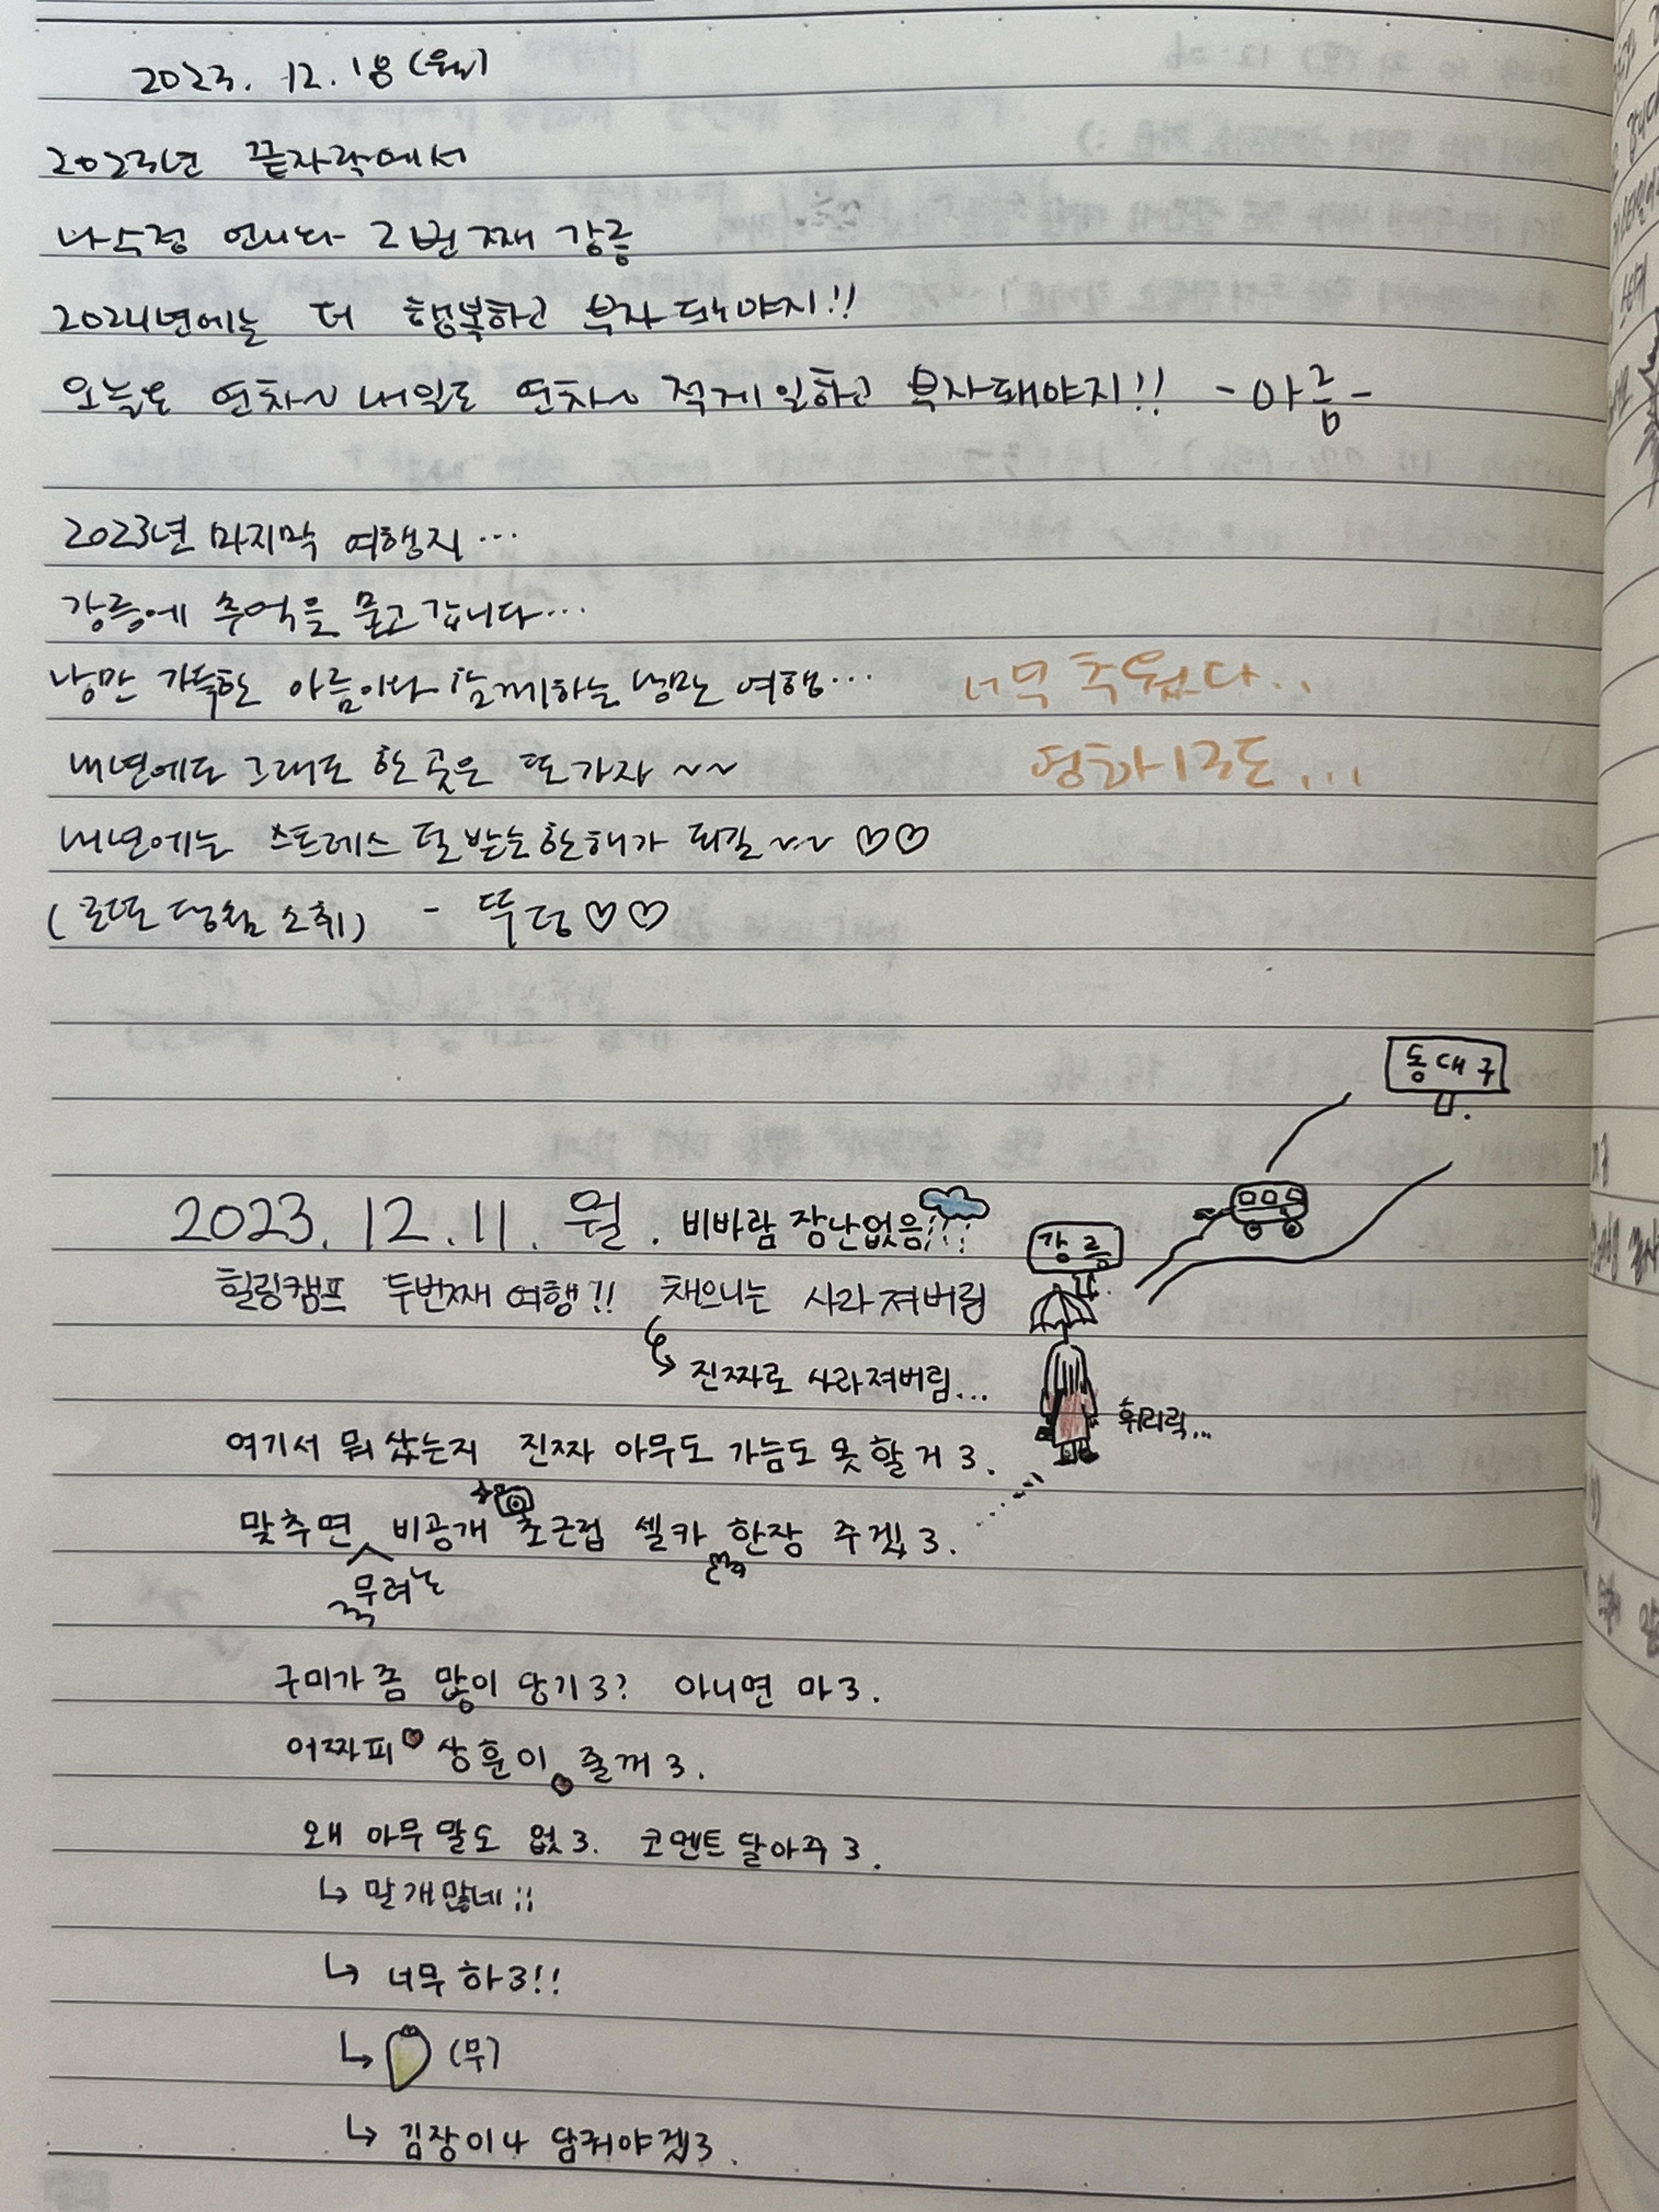 2023. 12. 18 (월)
2023년 끝자락에서
나수정 언니와 2번째 강릉
2024년에는 더 행복하고 부자 되야지!!
오늘도 연차~ 내일도 연차~ 적게일하고 부자돼야지!! -아름-
2023년 마지막 여행지...
강릉에 추억을 묻고 갑니다...
낭만 가득한 아름이와 함께하는 낭만 여행... 너무 추웠다..
내년에도 그래도 한 곳은 또 가자 ~~ 영하 13도...
내년에는 스트레스 덜 받는 한해가 되길 ~~ ♡♡
(로또 당첨 소취) - 뚜덩 ♡♡
동대구
2023. 12. 11. 월. 비바람 장난없음;;;
강릉
힐링캠프 두번째 여행?!! 채으니는 사라져버림
↳ 진짜로 사라져버림...
휘리릭...
여기서 뭐 샀는지 진짜 아무도 가늠도 못 할거 3.
맞추면 비공개 초근접 셀카 한장 주겠 3.
무려
구미가 좀 많이 당기3? 아니면 마3.
어짜피 ♥ 상훈이 ♥ 줄꺼 3.
왜 아무 말도 없 3. 코멘트 달아주 3.
↳ 말 개많네;;
↳ 너무 하3!!
↳ (무)
↳ 김장이나 담궈야겠3.